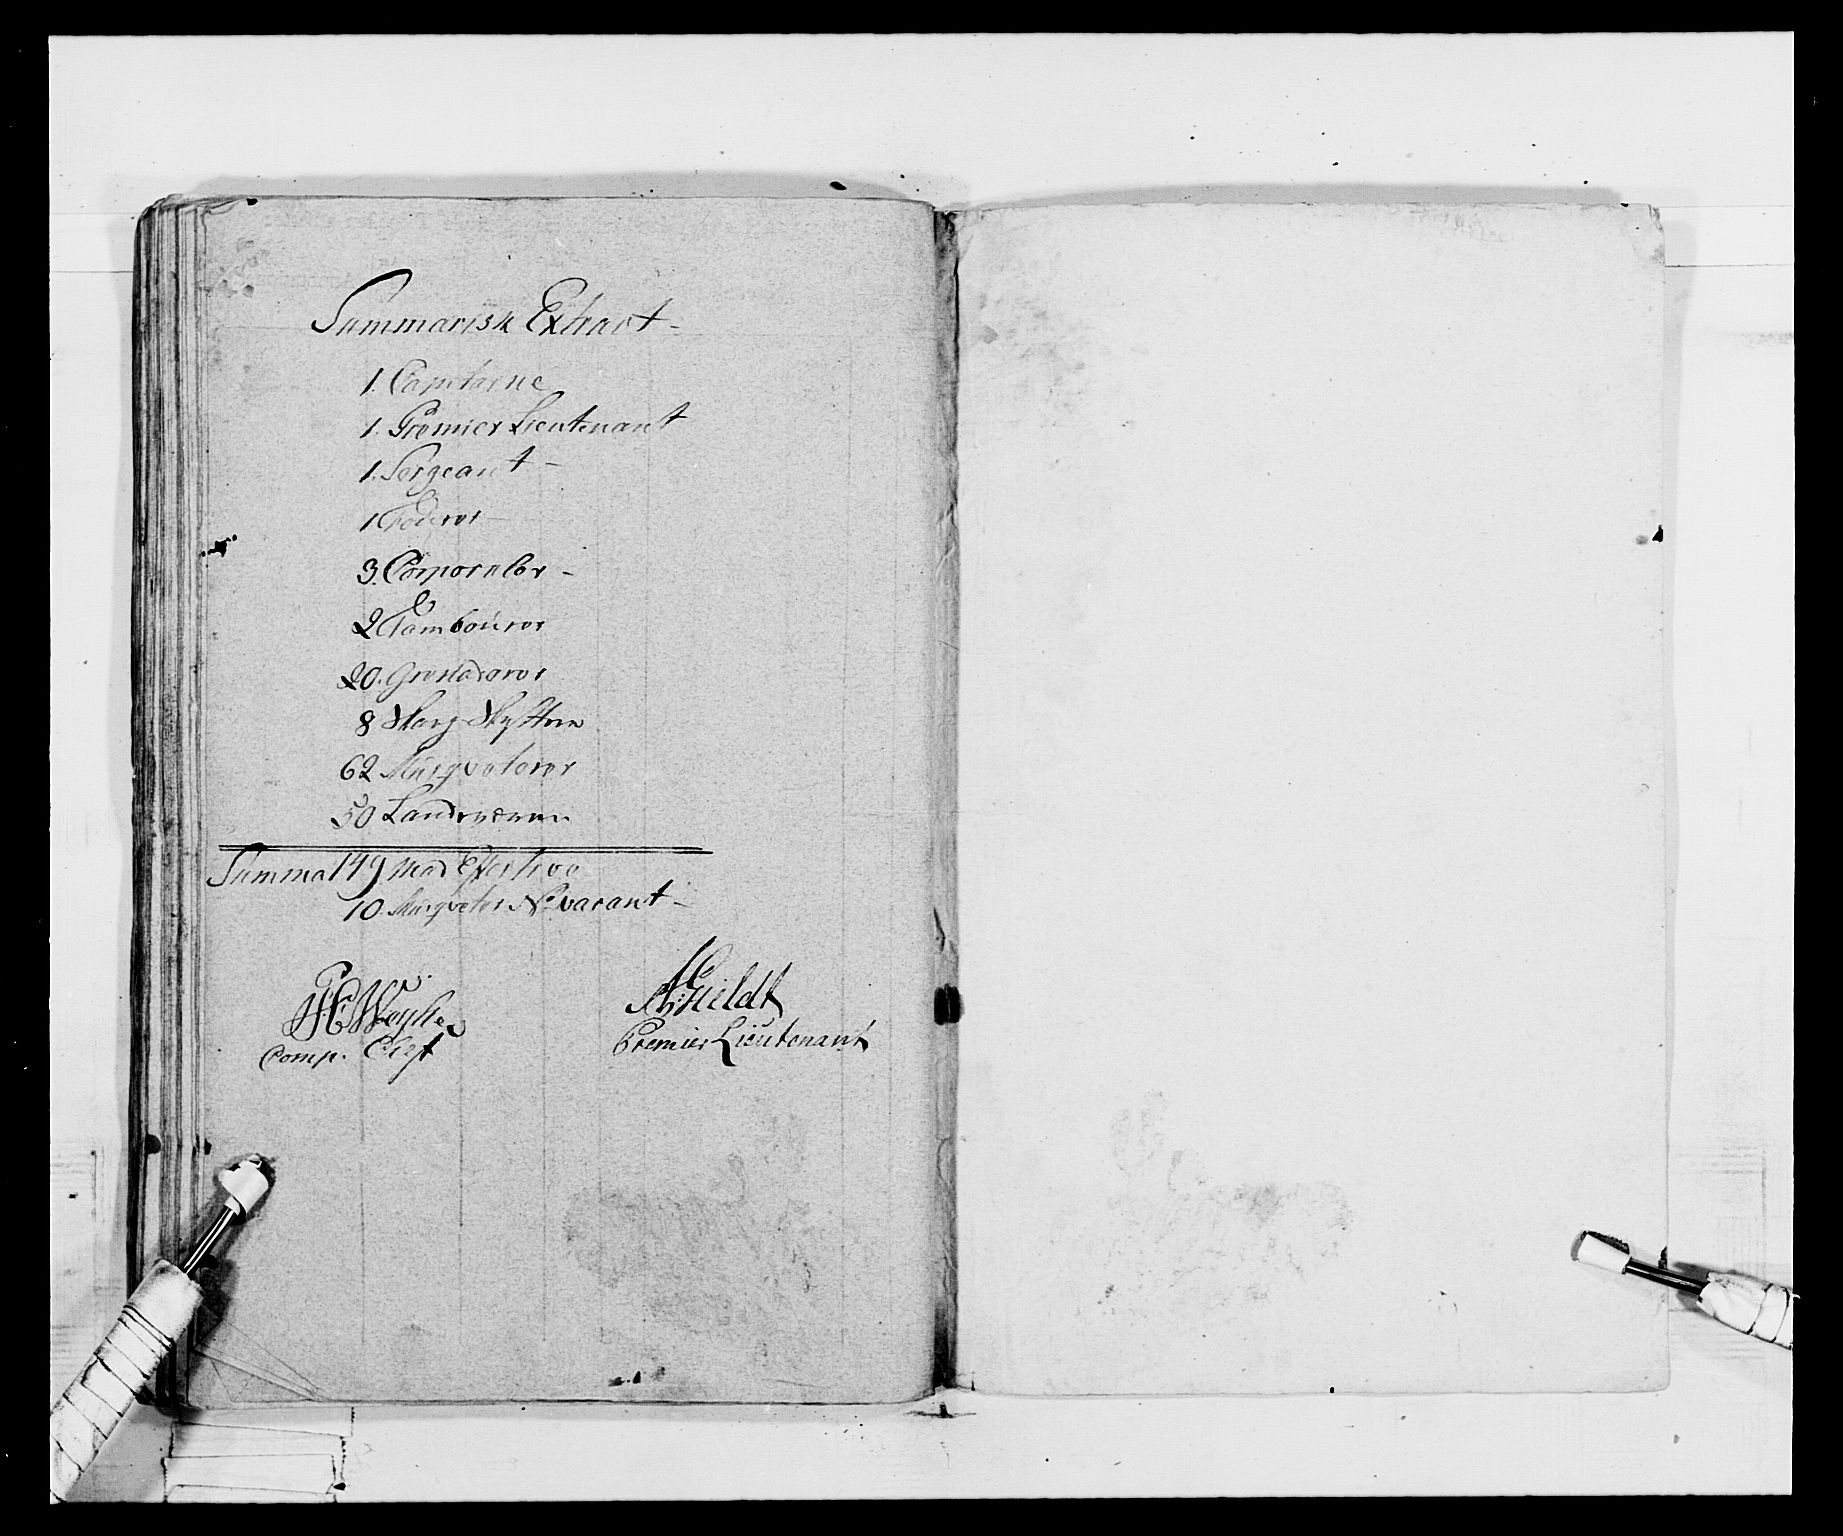 Summarisk Extract -
1. Capitaine
1. Premier Lieutenant
1. Sergeant -
1 Fourer -
3. Corporaler -
2 Tambourer
20. Grenaderer
8 Skarp Skyttere
62 Musqveterer
50 Landeværn
Summa 149 Mad Effective
10. Musqveter No vacant -
Comp. Chef
Premier Lieutenant